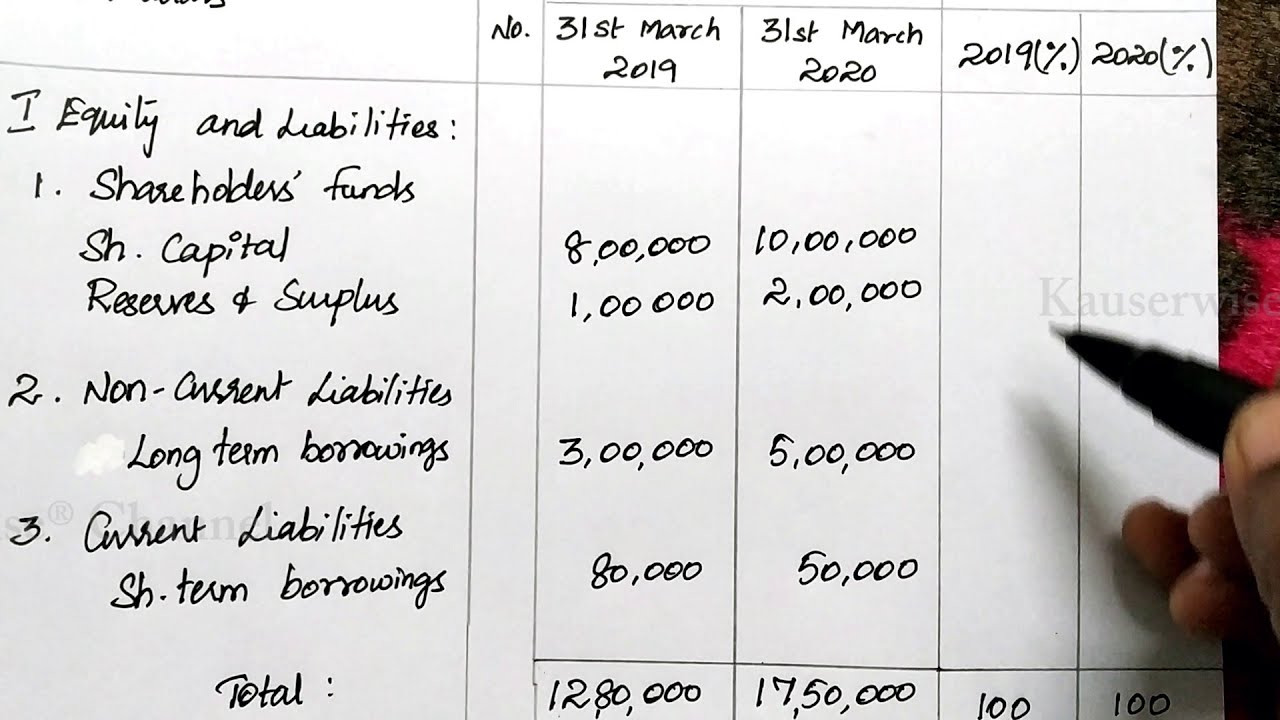 No. 31st March 2019 31st March 2020 2019(%) 2020(%)
I Equity and Liabilities:
1. Shareholders' funds
Sh. Capital 8,00,000 10,00,000
Reserves & Surplus 1,00 000 2,00,000
Kauserwise
2. Non-Current Liabilities
Long term borrowings 3,00,000 5,00,000
® Channel
3. Current Liabilities
Sh. term borrowings 80,000 50,000
Total: 12,80,000 17,50,000 100 100